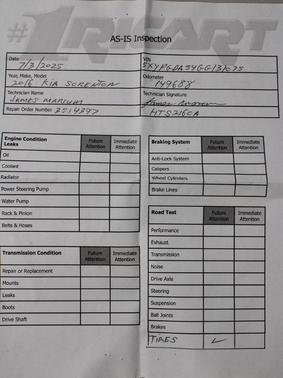 #1 RICART
AS-IS Inspection
Date 7/3/2025
VIN 5XYPGDA54GG131075
Year, Make, Model 2016 KIA SORENTON
Odometer 149688
Technician Name JAMES MARCUM
Technician Signature
Repair Order Number 2514397
HTS2160A
Engine Condition
Leaks
Future Attention
Immediate Attention
Oil
Coolant
Radiator
Power Steering Pump
Water Pump
Rack & Pinion
Belts & Hoses
Transmission Condition
Future Attention
Immediate Attention
Repair or Replacement
Mounts
Leaks
Boots
Drive Shaft
Braking System
Future Attention
Immediate Attention
Anti-Lock System
Calipers
Wheel Cylinders
Brake Lines
Road Test
Future Attention
Immediate Attention
Performance
Exhaust
Transmission
Noise
Drive Axle
Steering
Suspension
Ball Joints
Brakes
TIRES ✓